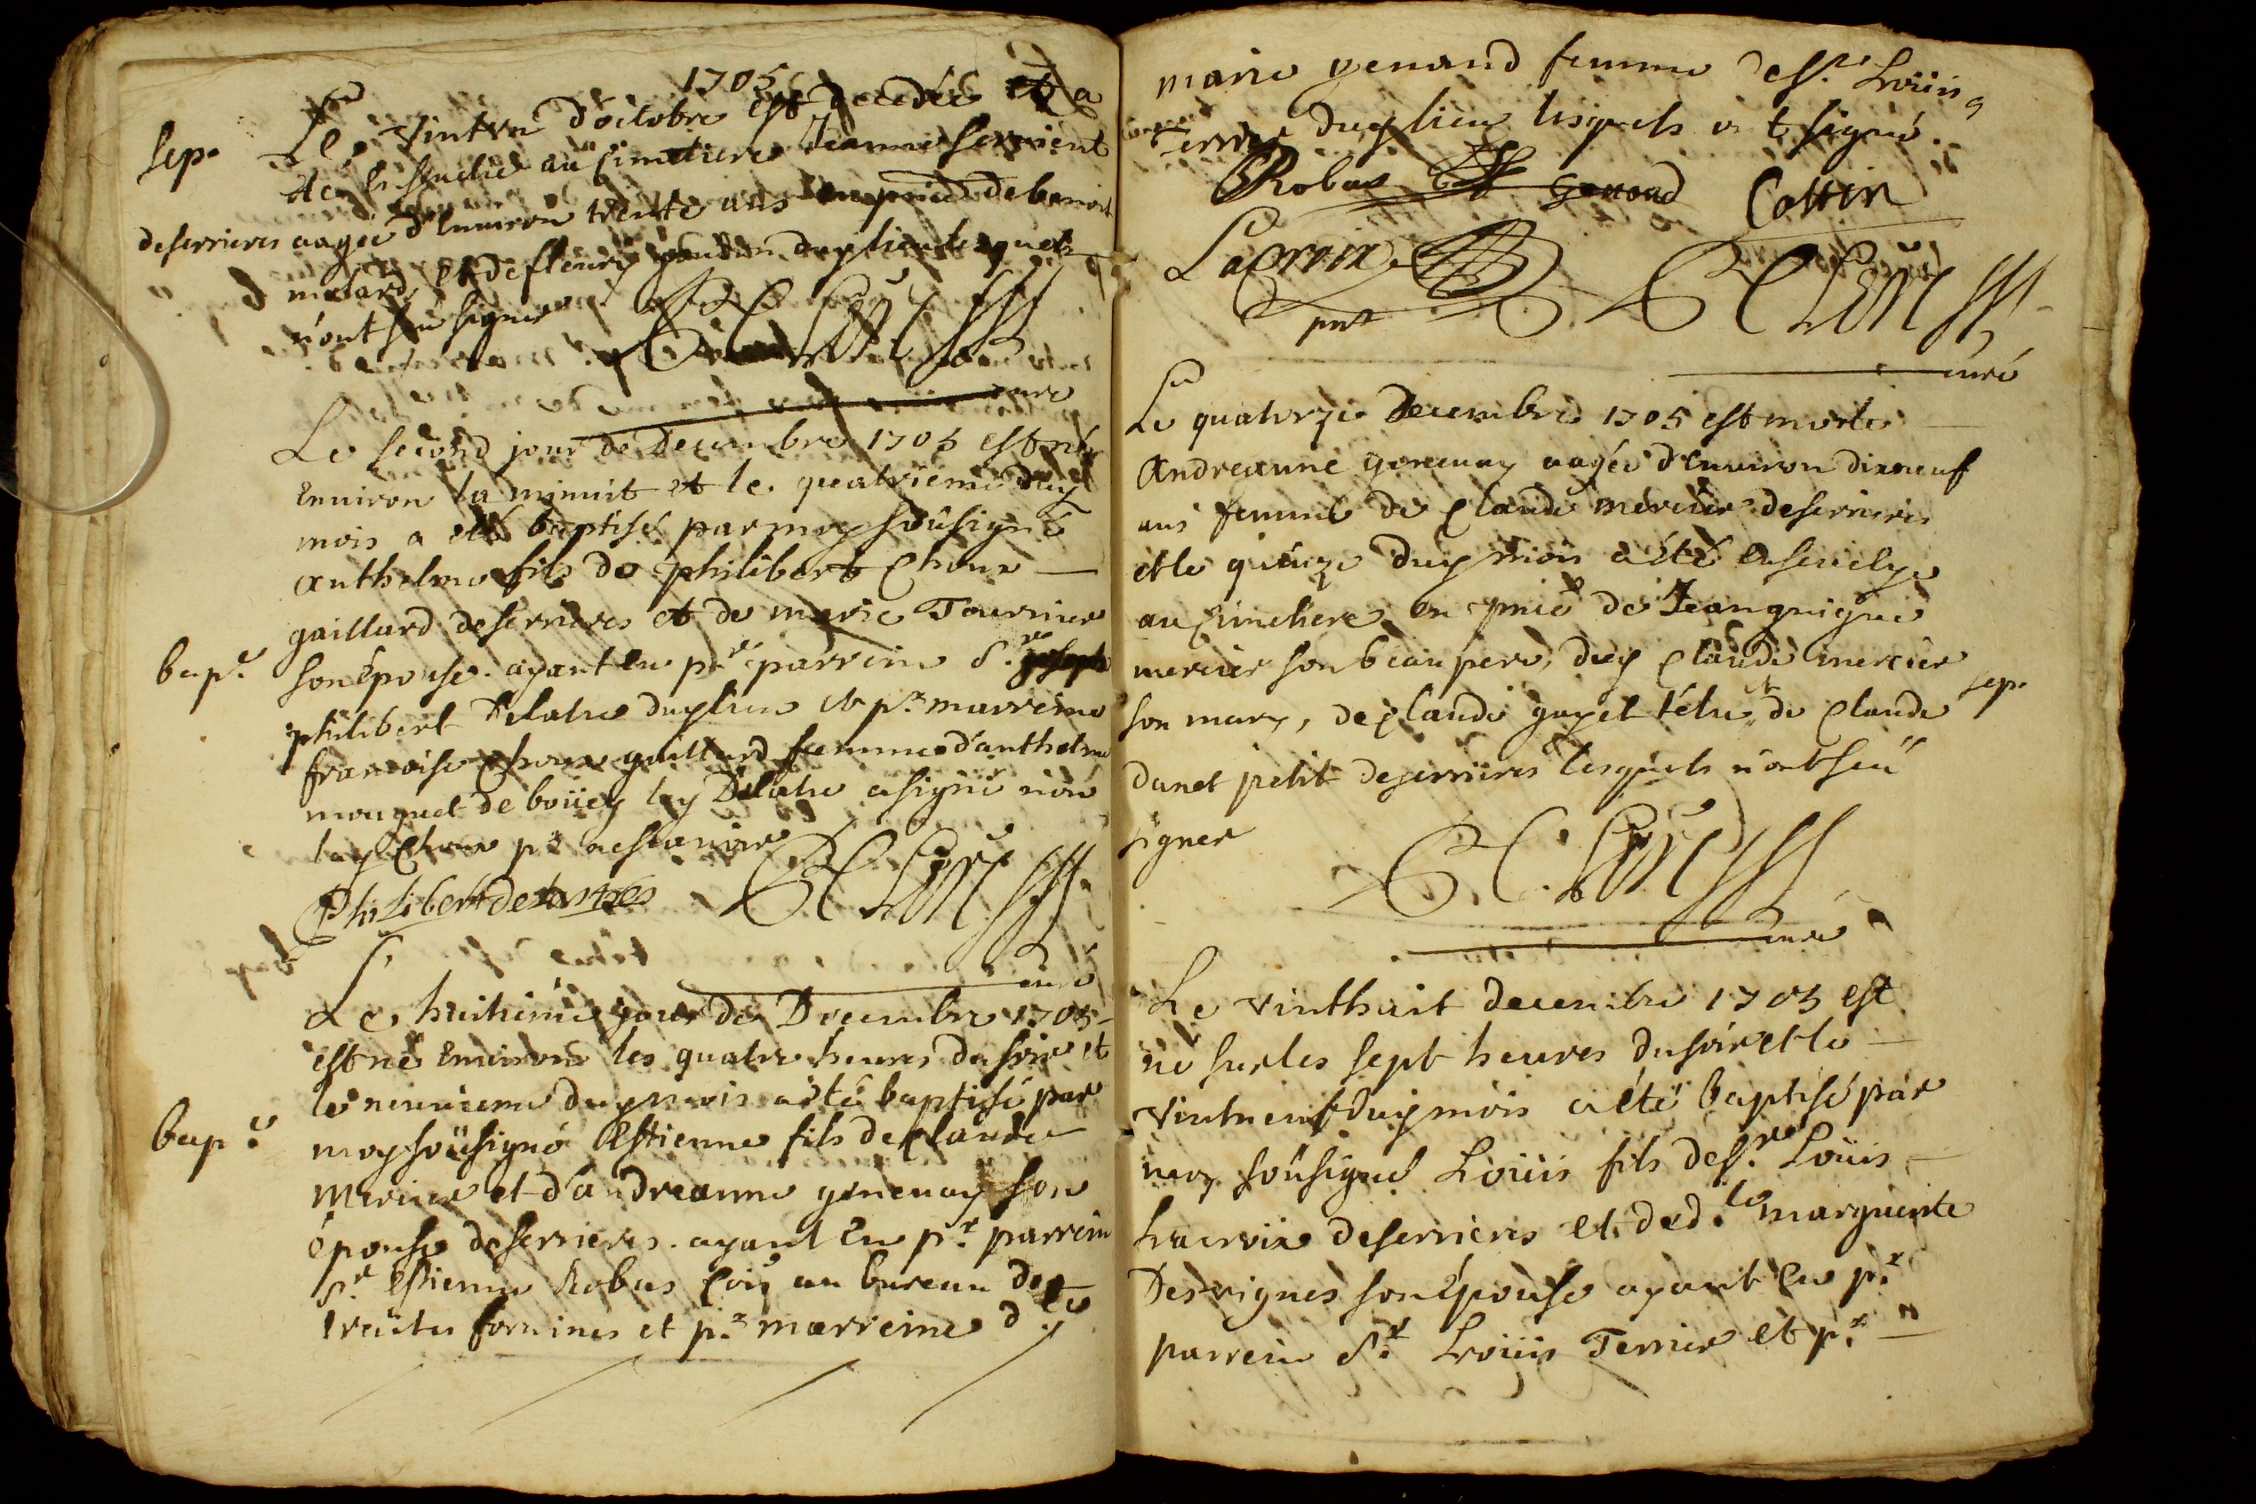 1705
sep.
Le Vintun d'octobre est decedée et a
été Ensevelie au Cimetiere Jeanne
deserrieres aagée d'Environ trente ans en pnce de benoit
et de fleury duy lieu lesquels
n'ont sçeu signer
curé
Le second jour de Decembre 1705 est né
Environ la minuit et le quatrieme duy
mois a été baptisé par moy soûsigné
Anthelme fils de philibert Choux
gaillard deserrieres et de marie Tournier
bap.e
son Épouse. ayant eu pr parrein Sr.
philibert Delatre duy lieu et pr marreine
francoise Choux gaillard femme d'anthelme
mouquet de boüey ley Delatre a signé non
lay Choux pr ne scavoir
Philibert
curé
Le huitieme jour de Decembre 1705
est né Environ les quatre heures du soir et
le neuvieme duy mois a été baptisé par
bap.e
moy soûsigné Estienne fils de Claude
Mercier et d'andreanne genevay son
épouse deserrieres. ayant Eu pr. parrein
Sr. Estienne Robus au bureau des
traites foraines et pr. marreine dlle
marie genand femme de sr. Loüis
Terrier duy lieu lesquels ont signé.
Robus genand Cottin
Lacroix
curé
Le quatorze Decembre 1705 est morte
Andreanne genevay aagée d'Environ dixneuf
ans femme de Claude mercier deserrieres
et le quinze duy mois a été Ensevelye
au Cimetiere en pnce de Jean
mercier son beau pere, duy Claude mercier
sep.
son mary, de Claude gayet tétu, et de Claude
danet petit deserrieres lesquels n'ont sceü
signer
curé
Le vinthuit decembre 1705 est
né sur les sept heures du soir et le
vintneuf duy mois a été baptisé par
moy soûsigné Loüis fils de sr. Loüis
Lacroix deserrieres et de dlle marguerite
Desvignes son Épouse ayant eu pr.
parrein Sr. Loüis Terrier et pr.